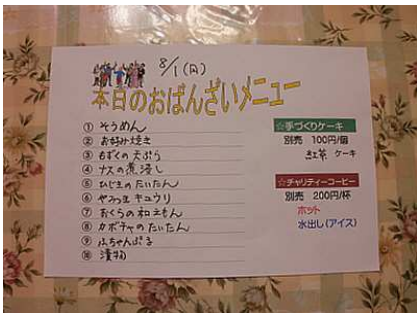 8/1(月)
本日のおばんざいメニュー
① そうめん
② お好み焼き
③ もずくの天ぷら
④ ナスの煮浸し
⑤ ひじきのたいたん
⑥ やみつきキュウリ
⑦ おくらの和えもん
⑧ カボチャのたいたん
⑨ ふちゃんぷる
⑩ 漬物
☆手づくりケーキ
別売 100円/個
紅茶 ケーキ
☆チャリティーコーヒー
別売 200円/杯
ホット
水出し(アイス)